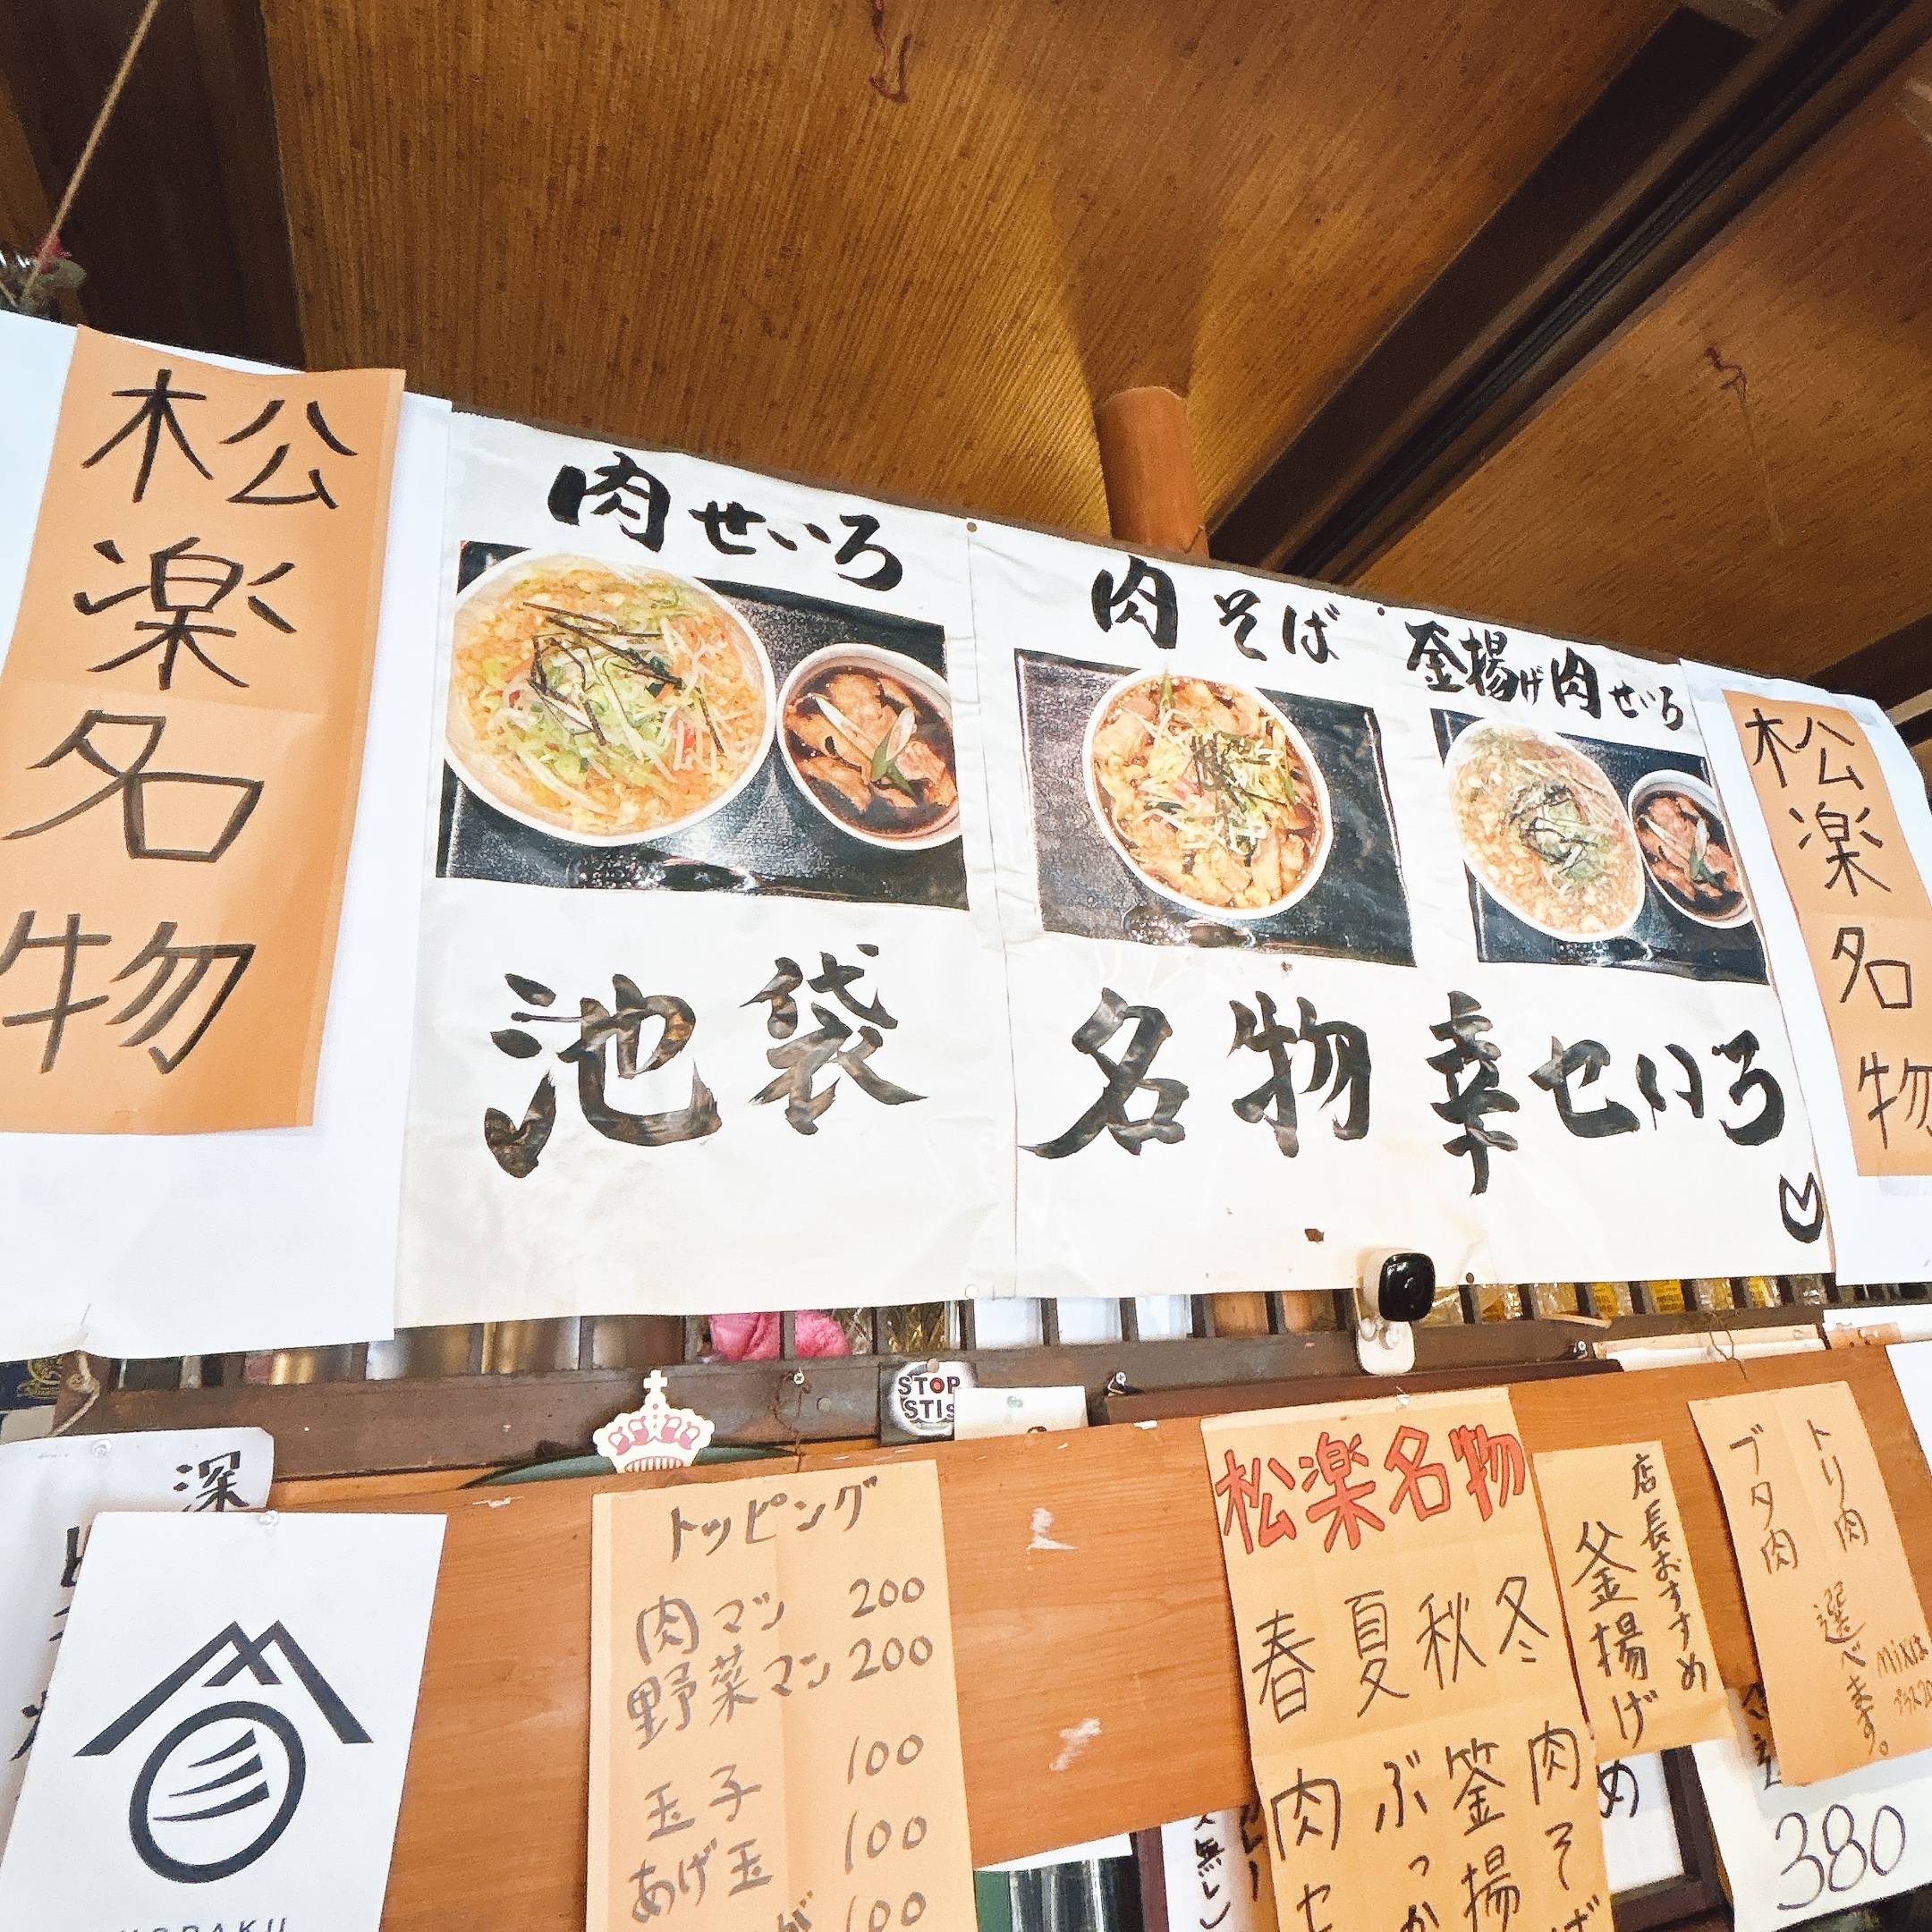 松楽名物
肉せいろ
肉そば
釜揚げ肉せいろ
池袋
名物幸せいろ
松楽名物
STOP
STIs
深
トッピング
肉マシ 200
野菜マシ 200
玉子 100
あげ玉 100
100
松楽名物
冬 肉そば
秋 釜揚
夏 ぶっか
春 肉セ
店長おすすめ
釜揚げ
トリ肉
ブタ肉
選べます。
Mixは
プラス20
め
380